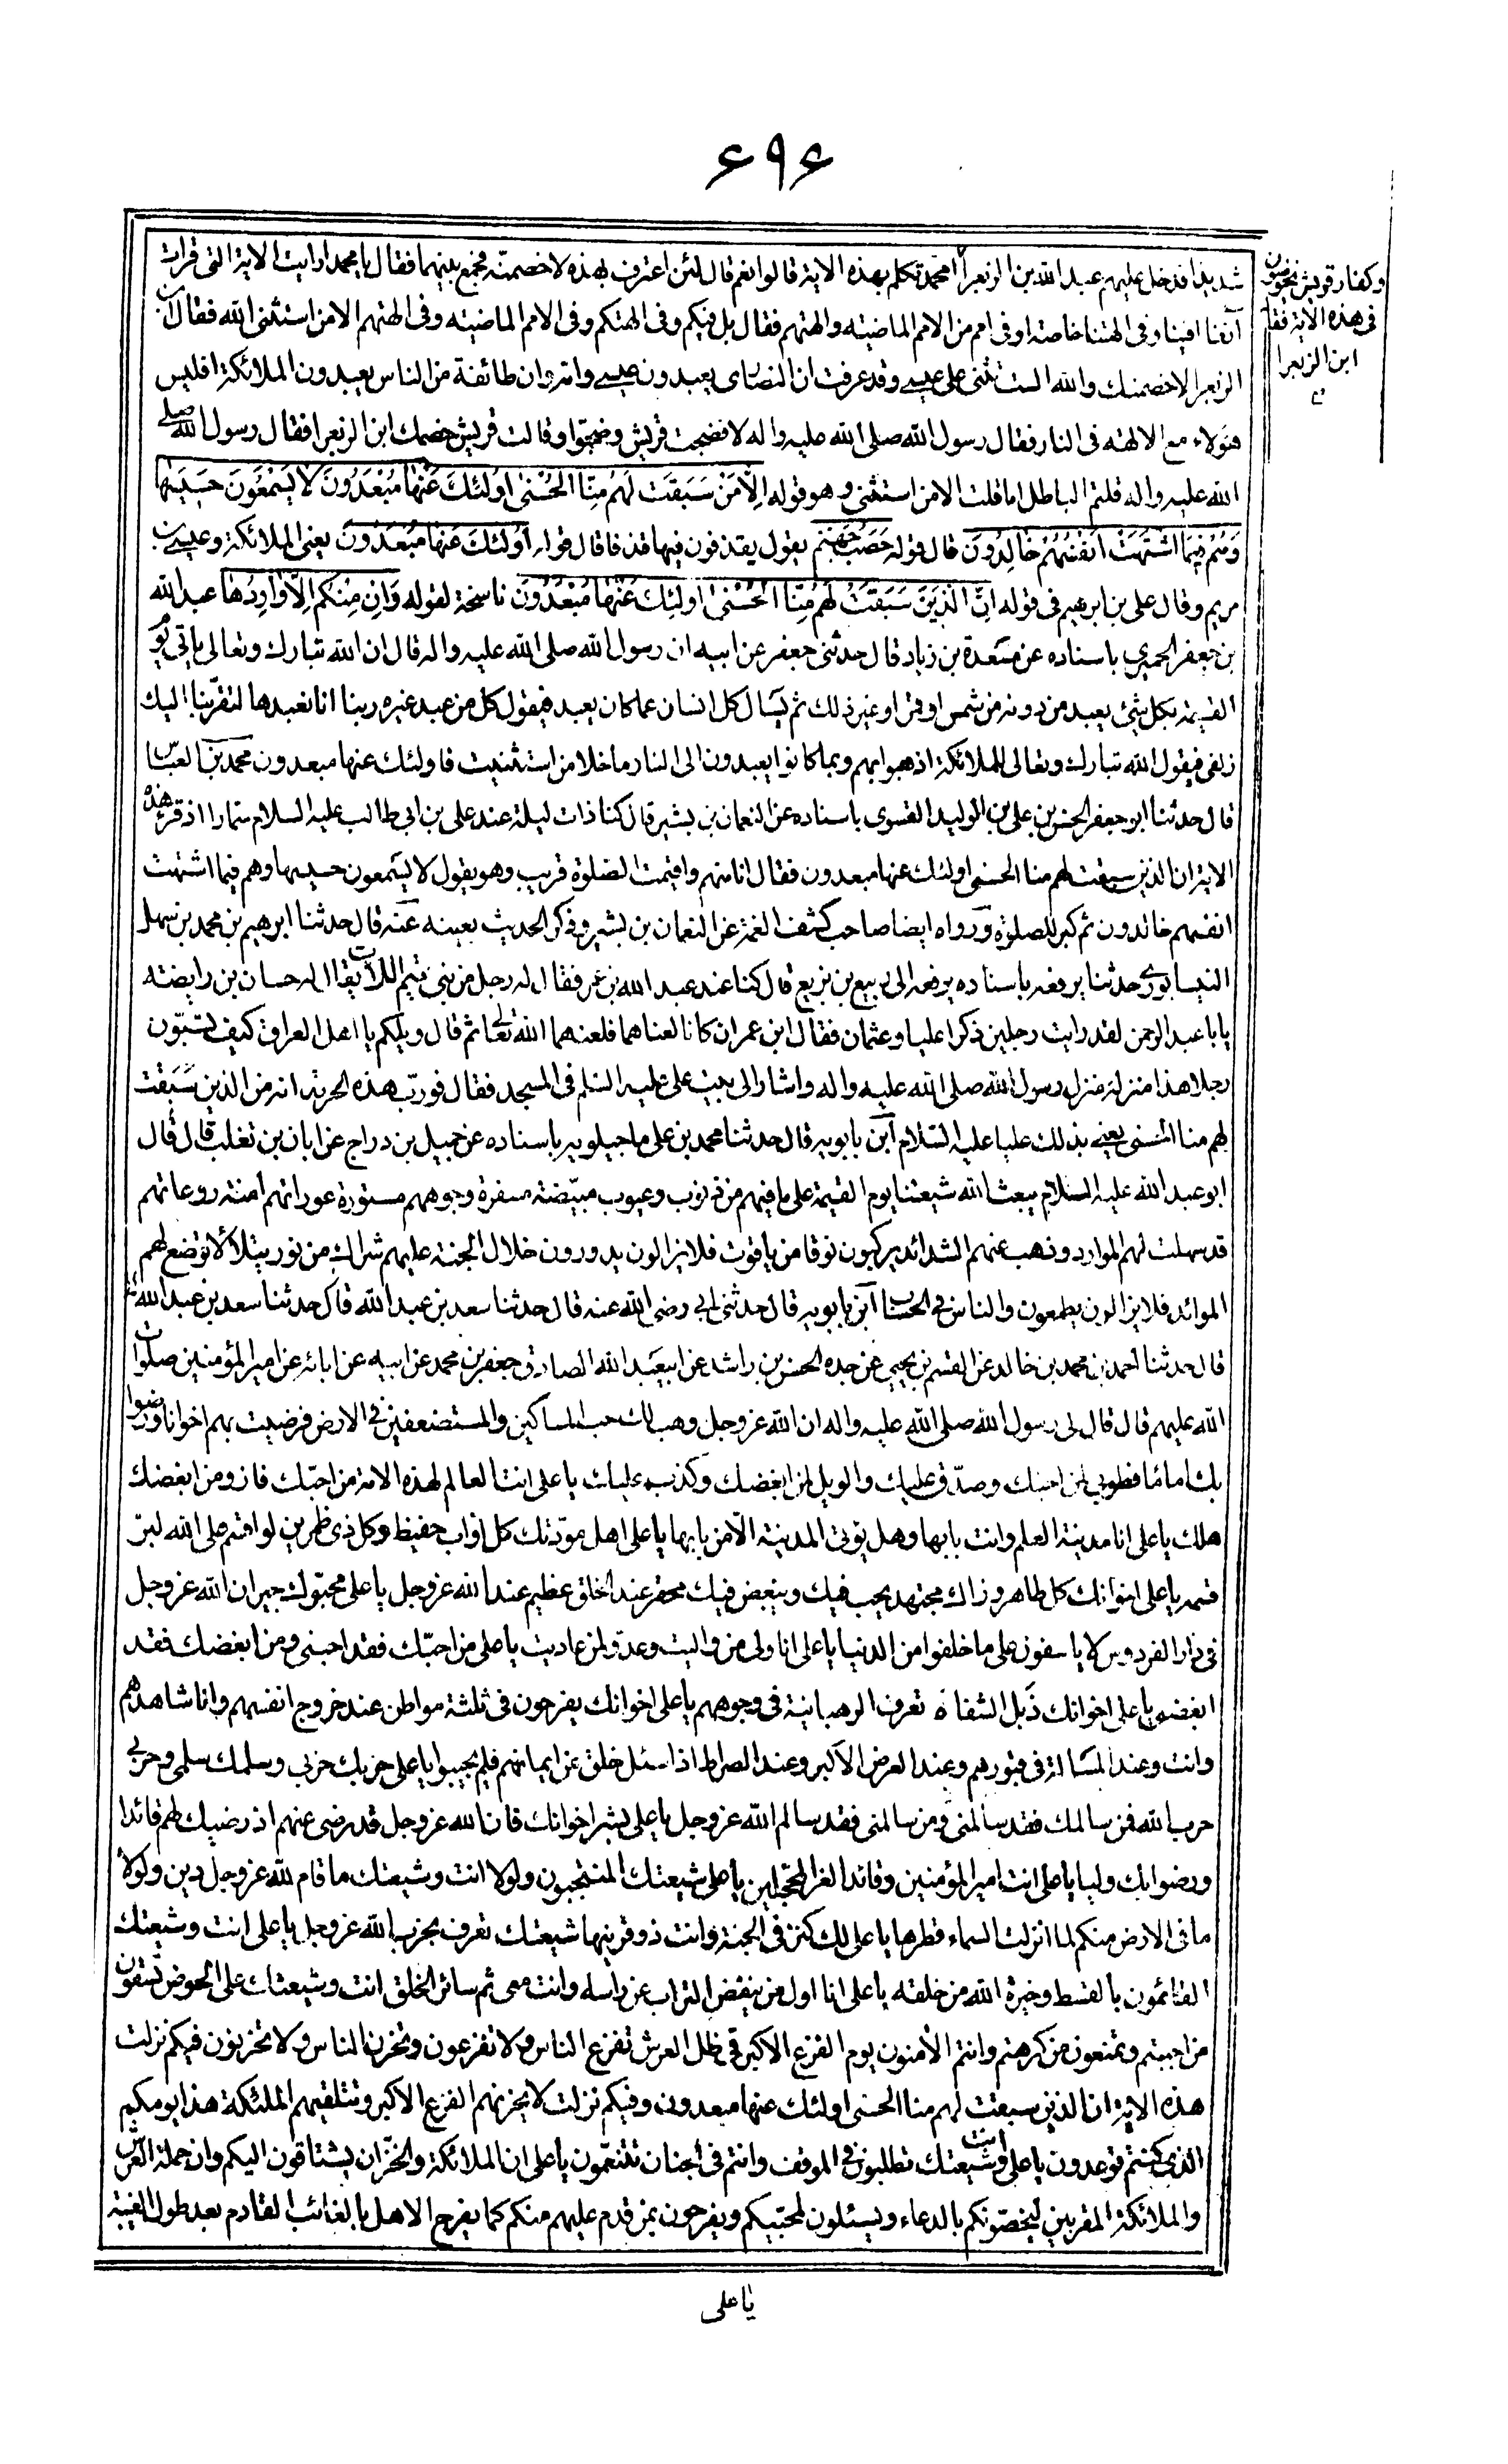 ۶۹۶
شديدا فدخل عليهم عبد الله بن الزبعرا أمحمد تكلم بهذه الاية قالوا نعم قال لئن اعترف بهذه لاخصمنه فجمع بينهما فقال يا محمد ارايت الاية التى قرات
وكفار قريش يخوضون
فى هذه الاية فقال
ابن الزبعرا
آنفا افينا وفى الهتنا خاصة او فى امم من الامم الماضيته والهتهم فقال بل فيكم وفى الهتكم وفى الامم الماضيته وفى الهتهم الا من استثنى الله فقال ابن
الزبعرا لاخصمنك والله الست تثنى على عيسى وقد عرفت ان النصارى يعبدون عيسى وامه وان طائفة من الناس يعبدون الملائكة افليس
هؤلاء مع الالهته فى النار فقال رسول الله صلى الله عليه واله لا فضجت قريش وضحكوا وقالت قريش خصمك ابن الزبعرا فقال رسول الله صلى
الله عليه واله قلتم الباطل اما قلت الا من استثنى وهو قوله الا من سَبَقَت لَهُم مِنّا الحُسْنى اولئك عَنْها مُبْعَدُونَ لا يَسْمَعُونَ حَسيسَها
وَهُم فيما اشْتَهَتْ اَنْفُسُهُمْ خالِدُونَ قال قوله حَصَبُ جَهَنّم يقول يقذفون فيها قذفا قال قوله اُولئكَ عَنها مُبْعَدُونَ يعنى الملائكة وعيسى بن
مريم وقال على بن ابرهيم فى قوله اِنّ الّذينَ سَبَقَتْ لَهُم مِنّا الحُسْنى اُولئِكَ عَنْها مُبْعَدُونَ ناسخة لقوله وَاِن مِنكُم اِلّا وارِدُها عبد الله
بن جعفر الحميرى باسناده عن مسعدة بن زياد قال حدثنى جعفر عن ابيه ان رسول الله صلى الله عليه واله قال ان الله تبارك وتعالى ياتى يوم
القيمة بكل شئ يعبد من دونه من شمس او قمر او غير ذلك ثم يسال كل انسان عما كان يعبد فيقول كل من عبد غيره ربنا انا نعبدها لتقربنا اليك
زلفى فيقول الله تبارك وتعالى للملائكة اذهبوا بهم وبما كانوا يعبدون الى النار ما خلا من استثنيت فاولئك عنها مبعدون محمد بن العباس
قال حدثنا ابو جعفر الحسن بن على بن الوليد الفسوى باسناده عن النعمان بن بشير قال كنا ذات ليلة عند على بن ابى طالب عليه السلام سمارا اذ قرء هذه
الاية ان الذين سبقت لهم منا الحسنى اولئك عنها مبعدون فقال انا منهم واقيمت الصلوة قريب وهو يقول لا يسمعون حسيسها وهم فيما اشتهت
انفسهم خالدون ثم كبر للصلوة ورواه ايضا صاحب كشف الغمة عن النعمان بن بشير وذكر الحديث بعينه عنه قال حدثنا ابرهيم بن محمد بن سهل
النيسابورى حدثنا يرفعه باسناده يرفعه الى ربيع بن بزيع قال كنا عند عبد الله بن عمر فقال له رجل من بنى تيم اللات يقال له حسان بن رابضته
يابا عبد الرحمن لقد رايت رجلين ذكرا عليا وعثمان فقال ابن عمر ان كانا لعناهما فلعنهما الله تعالى ثم قال ويلكم يا اهل العراق كيف تسبّون
رجلا هذا منزله منزل رسول الله صلى الله عليه واله واشار الى بيت على عليه السلم فى المسجد فقال فورب هذه الحرمة انه من الذين سبقت
لهم منا الحسنى يعنى بذلك عليا عليه السلام ابن بابويه قال حدثنا محمد بن على ماجيلويه باسناده عن جميل بن دراج عن ابان بن تغلب قال قال
ابو عبد الله عليه السلام يبعث الله شيعتنا يوم القيمة على ما فيهم من ذنوب وعيوب مبيّضة مسفرة وجوههم مستورة عوراتهم امنة روعاتهم
قد سهلت لهم الموارد وذهب عنهم الشدائد يركبون نوقا من ياقوت فلا يزالون يدورون خلال الجنة عليهم شراك من نور يتلألأ توضع لهم
الموائد فلا يزالون يطعمون والناس فى الحساب ابن بابويه قال حدثنى ابى رضى الله عنه قال حدثنا سعد بن عبد الله قال حدثنا سعد بن عبد الله
قال حدثنا احمد بن محمد بن خالد عن القسم بن يحيى عن جده الحسن بن راشد عن ابيعبد الله الصادق جعفر بن محمد عن ابيه عن ابائه عن امير المؤمنين صلوات
الله عليهم قال قال لى رسول الله صلى الله عليه واله ان الله عز وجل وهب لك حب المساكين والمستضعفين فى الارض فرضيت بهم اخوانا ورضوا
بك اماما فطوبى لمن احبك وصدّق عليك والويل لمن ابغضك وكذب عليك يا على انت العالم لهذه الامة من احبّك فاز ومن ابغضك
هلك يا على انا مدينة العلم وانت بابها وهل يؤتى المدينة الّا من بابها يا على اهل مودّتك كل اوّاب حفيظ وكل ذى طمرين لو اقسم على الله لبرّ
قسمه يا على اخوانك كل طاهر وزاك مجتهد يحب فيك ويبغض فيك محتقر عند الخلق عظيم عند الله عز وجل يا على محبّوك جيران الله عز وجل
فى دار الفردوس لا ياسفون على ما خلفوا من الدنيا يا على انا ولى من واليت وعدوّ لمن عاديت يا على من احبّك فقد احبنى ومن ابغضك فقد
ابغضنى يا على اخوانك ذَبل الشفاه تعرف الرهبانية فى وجوههم يا على اخوانك يفرحون فى ثلثة مواطن عند خروج انفسهم وانا شاهدهم
وانت وعند المسالة فى قبورهم وعند العرض الاكبر وعند الصراط اذا سئل خلق عن ايمانهم فلم يجيبوا يا على حربك حربى وسلمك سلمى وحربى
حرب الله فمن سالمك فقد سالمنى ومن سالمنى فقد سالم الله عز وجل يا على بشر اخوانك فان الله عز وجل قد رضى عنهم اذ رضيك لهم قائدا
ورضوا بك وليا يا على انت امير المؤمنين وقائد الغر المحجلين يا على شيعتك المنتجبون ولولا انت وشيعتك ما قام لله عز وجل دين ولولا
ما فى الارض منكم لما انزلت السماء قطرها يا على لك كنز فى الجنة وانت ذو قرنيها شيعتك تعرف بحزب الله عز وجل يا على انت وشيعتك
القائمون بالقسط وخيرة الله من خلقه يا على انا اول من ينفض التراب عن راسه وانت معى ثم سائر الخلق انت وشيعتك على الحوض تسقون
من احببتم وتمنعون من كرهتم وانتم الآمنون يوم الفزع الاكبر فى ظل العرش تفزع الناس ولا تفزعون وتحزن الناس ولا تحزنون فيكم نزلت
هذه الاية ان الذين سبقت لهم منا الحسنى اولئك عنها مبعدون وفيكم نزلت لا يحزنهم الفزع الاكبر وتتلقيهم الملئكة هذا يومكم
الذى كنتم توعدون يا على انت وشيعتك تطلبون فى الموقف وانتم فى الجنان تتنعّمون يا على ان الملائكة والخزّان يشتاقون اليكم وان حملة العرش
والملائكة المقربين ليخصّونكم بالدعاء ويسئلون لمحبّيكم ويفرحون بمن قدم عليهم منكم كما يفرح الاهل بالغائب القادم بعد طول الغيبة
يا على